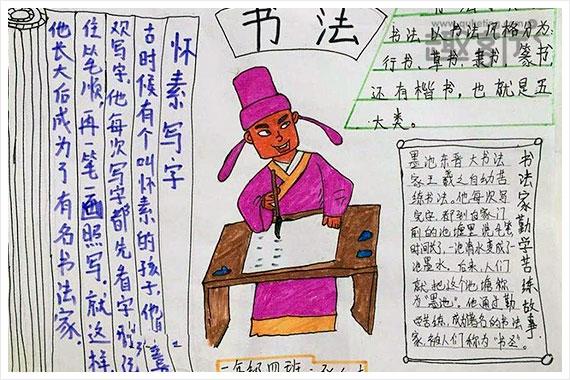 书法
怀素写字
古时候有个叫怀素的孩子,他喜
欢写字,他每次写字都先看字
住笔顺,再一笔一画照写,就这样
他长大后成为了有名书法家.
书法以书法风格分为:
行书、草书、隶书、篆书,
还有楷书,也就是五
大类。
书法家勤学苦练故事.
墨池东晋大书法
家王羲之自幼苦
练书法。他每次写
完字,都到自家门
前的池塘里洗毛笔
时间长了,一池清水变成了一
池墨水,后来,人们
就把这个池塘称
为“墨池”。他通过勤
学苦练,成著名的书法
家,被人们称为“书圣”。
一年级四班: